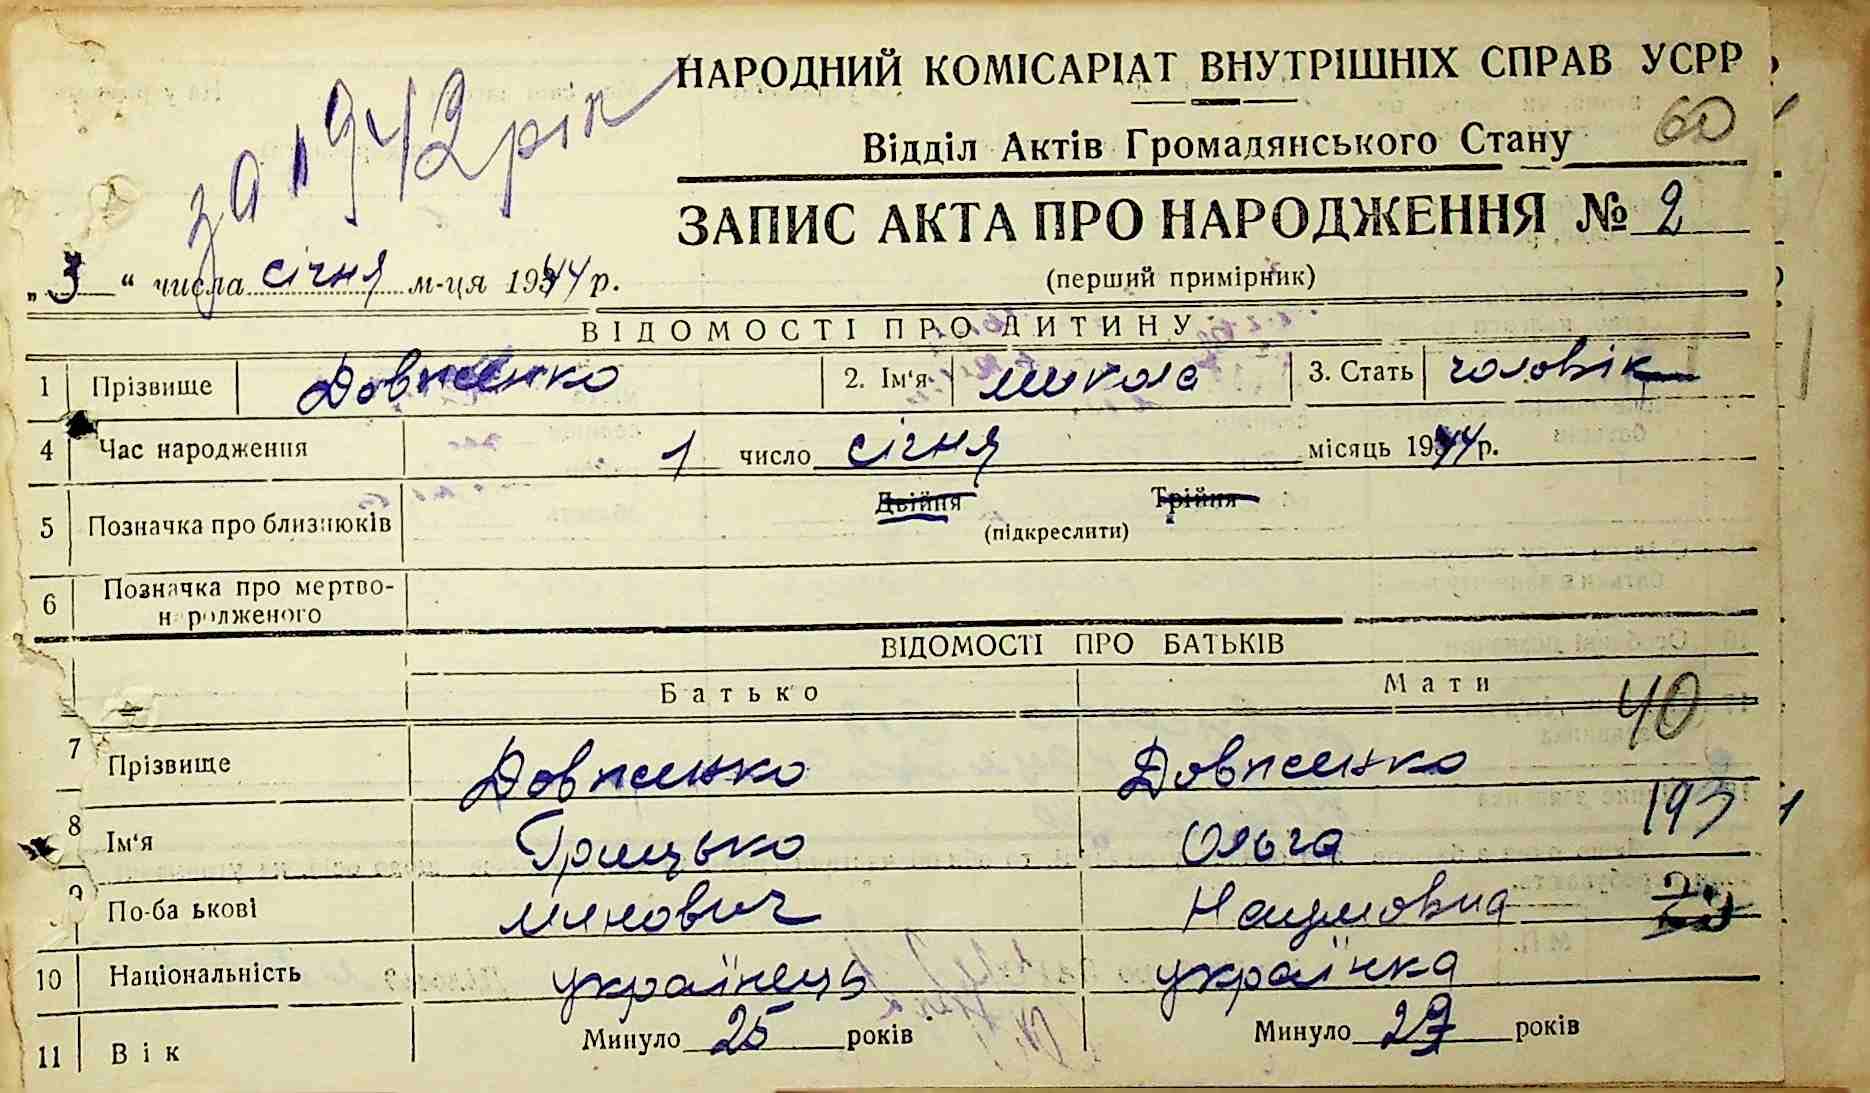 за 1942 рік
НАРОДНИЙ КОМІСАРІАТ ВНУТРІШНІХ СПРАВ УСРР
60
Відділ Актів Громадянського Стану
ЗАПИС АКТА ПРО НАРОДЖЕННЯ № 2
(перший примірник)
„3“ числа січня м-ця 1944 р.
ВІДОМОСТІ ПРО ДИТИНУ
1 Прізвище Довженко 2. Ім'я Микола 3. Стать чоловік
4 Час народження 1 число січня місяць 1944 р.
5 Позначка про близнюків Двійня Трійня
(підкреслити)
6 Позначка про мертво-
народженого
ВІДОМОСТІ ПРО БАТЬКІВ
Батько Мати
40
7 Прізвище Довженко Довженко
193
8 Ім'я Грицько Ольга
9 По-ба ькові Минович Наумовна
10 Національність українець українка
11 Вік Минуло 25 років Минуло 27 років